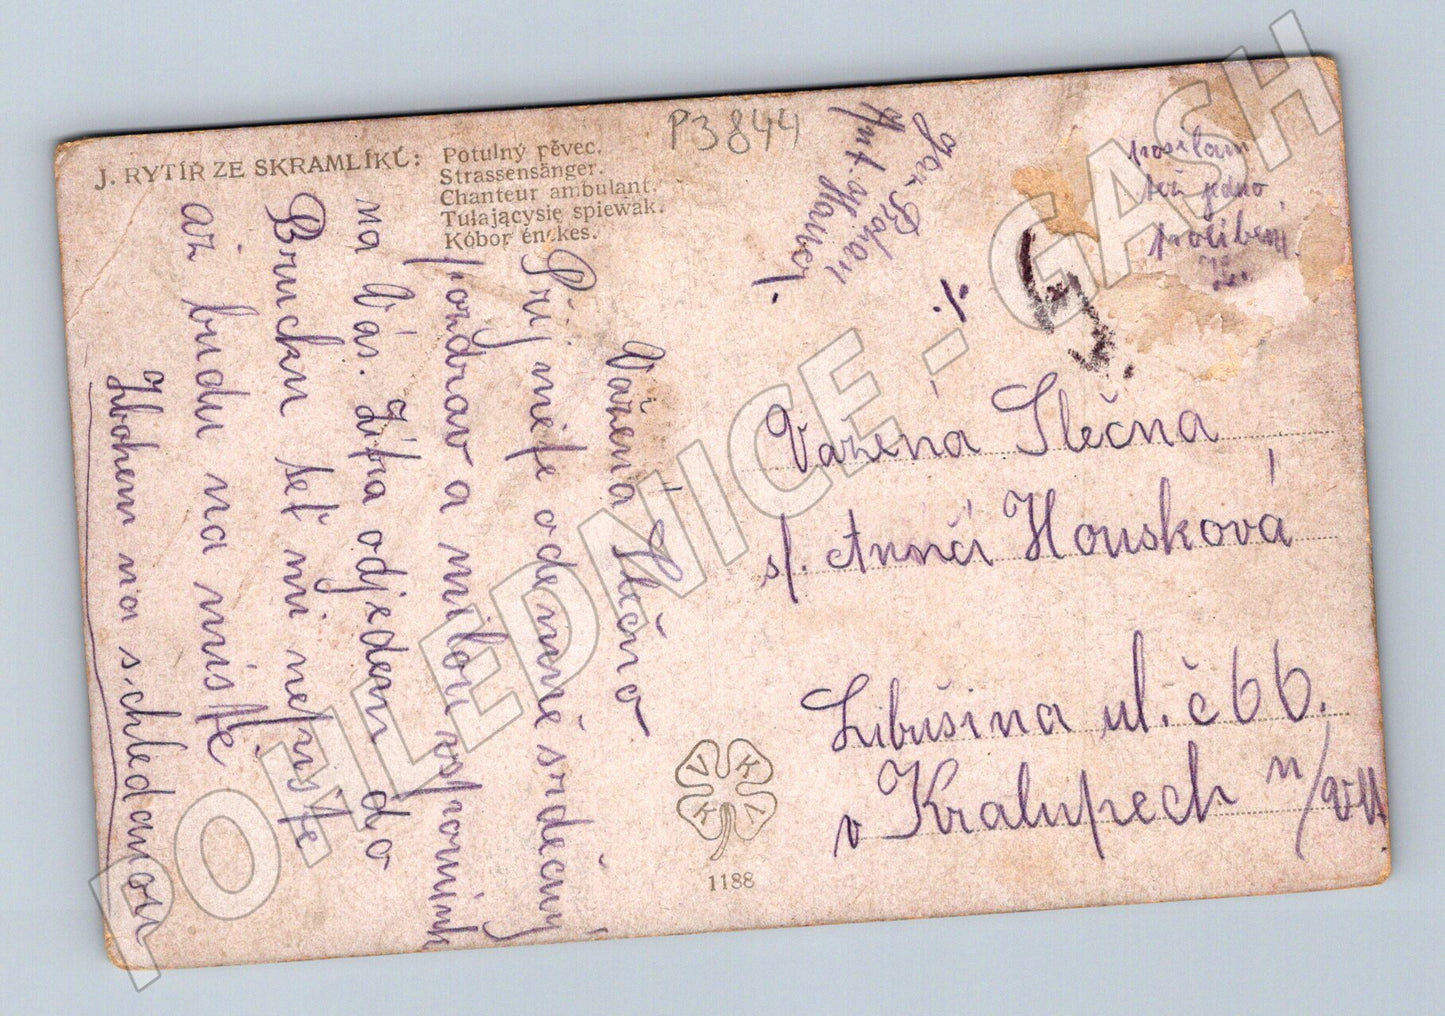 P3844
J. RYTÍŘ ZE SKRAMLÍKŮ:
Potulný pěvec.
Strassensänger.
Chanteur ambulant.
Tułającysię spiewak.
Kóbor énekes.
Vážená Slečno
Přijměte odemně srdečný
pozdrav a milou vzpomínk
na Vás. Zítra odjedem do
Brucku teť mi nepište
až budu na místě
Zbohem na s,chledanou
posílam
též jedno
políbení
Važená Slečna
sl. Annči Housková
Libušina ul. č 66.
v Kralupech n/Vll
VKVK
1188
POHLEDNICE - GASH